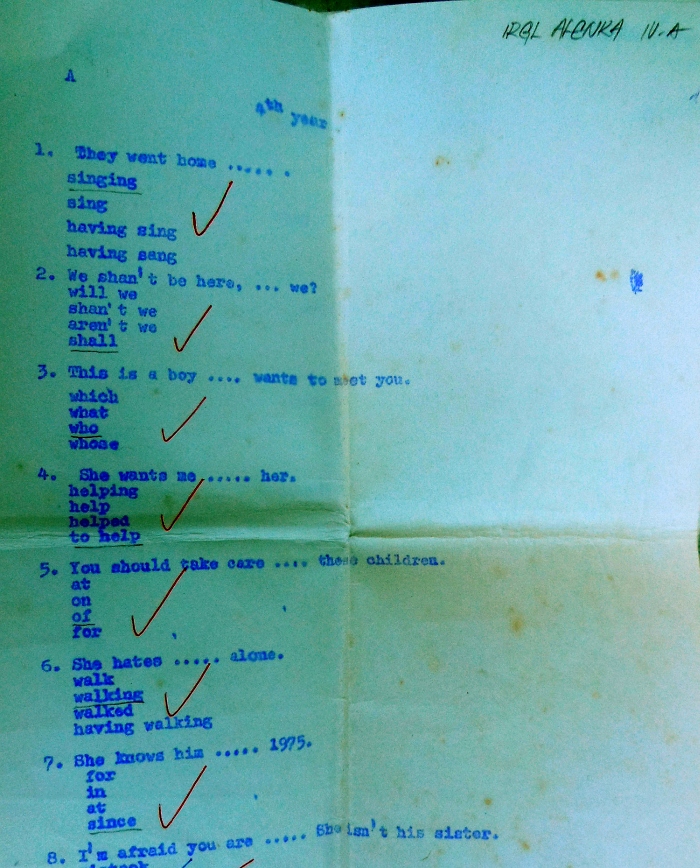 IRGL ALENKA IV.A
A
4th year
1. They went home ..... .
singing
sing
having sing
having sang
2. We shan't be here, ... we?
will we
shan't we
aren't we
shall
3. This is a boy .... wants to meet you.
which
what
who
whose
4. She wants me ..... her.
helping
help
helped
to help
5. You should take care .... these children.
at
on
of
for
6. She hates ..... alone.
walk
walking
walked
having walking
7. She knows him ..... 1975.
for
in
at
since
8. I'm afraid you are ..... She isn't his sister.